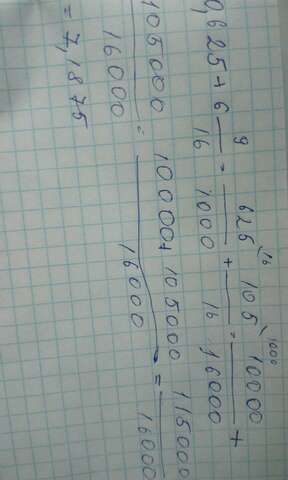 0,625 + 6 9/16 = 625\16/1000 + 105\1000/16 = 10000/16000 +
105000/16000 = 10000 + 105000/16000 = 115000/16000
= 7,1875